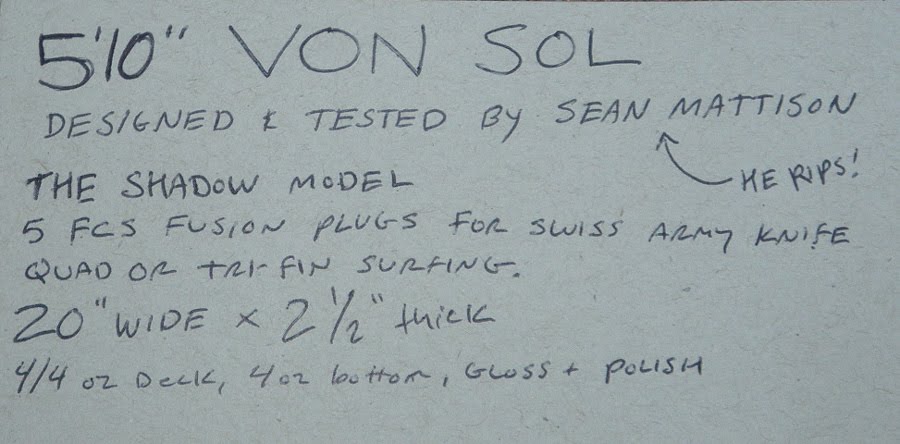 5'10" VON SOL
DESIGNED & TESTED BY SEAN MATTISON
HE RIPS!
THE SHADOW MODEL
5 FCS FUSION PLUGS FOR SWISS ARMY KNIFE
QUAD OR TRI-FIN SURFING.
20" WIDE x 2 1/2" thick
4/4 oz Deck, 4oz bottom, GLOSS + POLISH